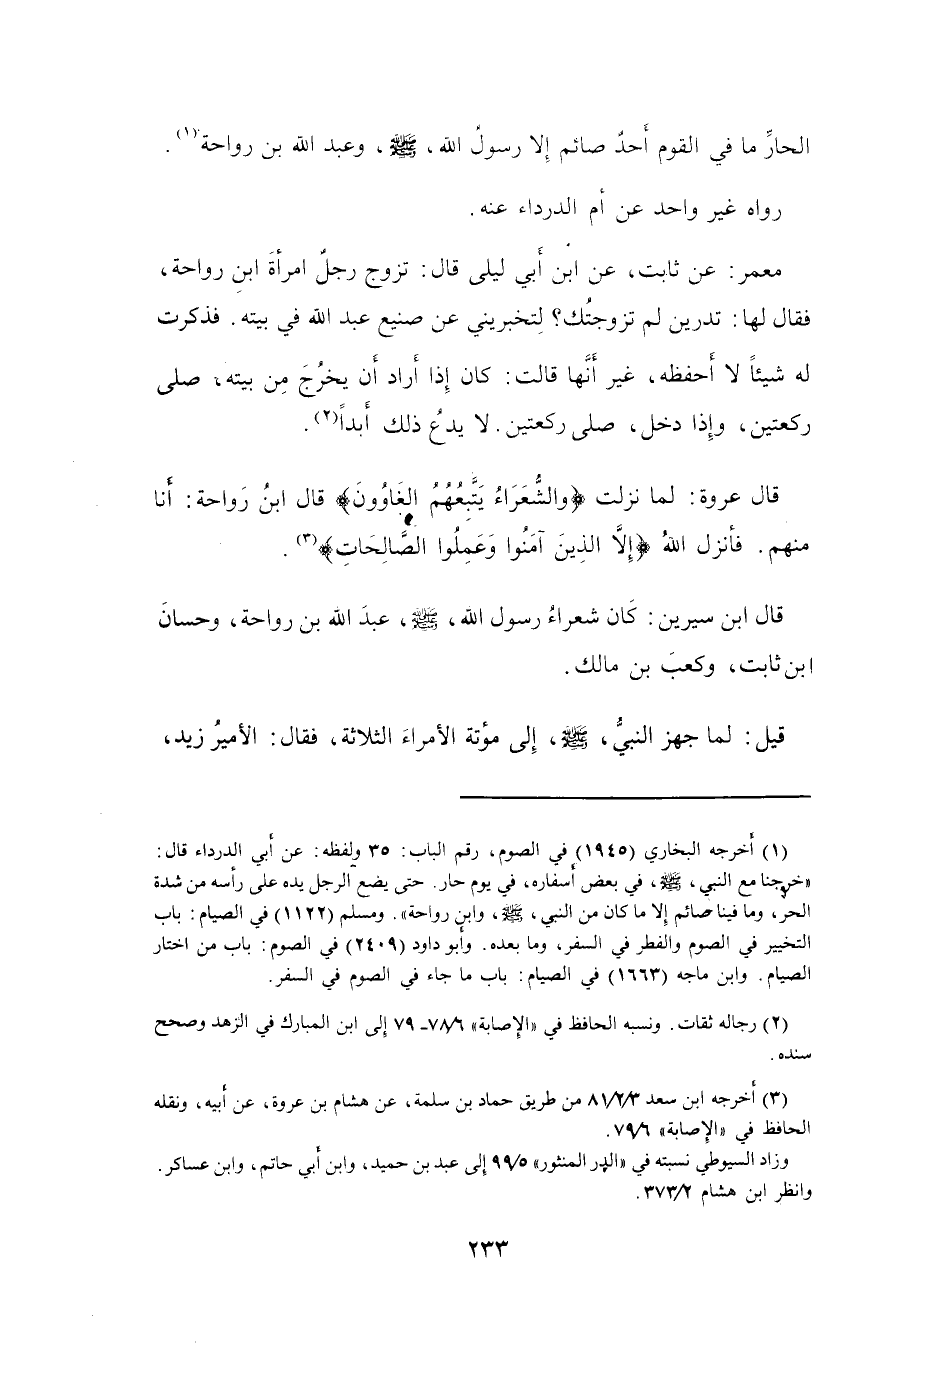 الحارِّ ما في القوم أَحدٌ صائم إلا رسولُ الله، ﷺ، وعبد الله بن رواحة(١).
رواه غير واحد عن أم الدرداء عنه.
معمر: عن ثابت، عن ابن أَبي ليلى قال: تزوج رجلٌ امرأةَ ابنِ رواحة،
فقال لها: تدرين لم تزوجتُك؟ لِتخبريني عن صنيع عبد الله في بيته. فذكرت
له شيئاً لا أَحفظه، غير أَنَّها قالت: كان إِذا أَراد أَن يخرُجَ مِن بيته، صلى
ركعتين، وإِذا دخل، صلى ركعتين. لا يدعُ ذلك أَبداً(٢).
قال عروة: لما نزلت ﴿والشُّعَرَاءُ يَتَّبِعُهُمُ الغَاوُونَ﴾ قال ابنُ رَواحة: أَنا
منهم. فأنزل اللهُ ﴿إِلَّا الذِينَ آمَنُوا وَعَمِلُوا الصَّالِحَاتِ﴾(٣).
قال ابن سيرين: كَان شعراءُ رسول الله، ﷺ، عبدَ الله بن رواحة، وحسانَ
ابن ثابت، وكعبَ بن مالك.
قيل: لما جهز النبيُّ، ﷺ، إِلى مؤتة الأمراءَ الثلاثة، فقال: الأميرُ زيد،
(١) أَخرجه البخاري (١٩٤٥) في الصوم، رقم الباب: ٣٥ ولفظه: عن أَبي الدرداء قال:
«خرجنا مع النبي، ﷺ، في بعض أَسفاره، في يوم حار. حتى يضع الرجل يده على رأسه من شدة
الحر، وما فينا صائم إلا ما كان من النبي، ﷺ، وابن رواحة». ومسلم (١١٢٢) في الصيام: باب
التخيير في الصوم والفطر في السفر، وما بعده. وأَبو داود (٢٤٠٩) في الصوم: باب من اختار
الصيام. وابن ماجه (١٦٦٣) في الصيام: باب ما جاء في الصوم في السفر.
(٢) رجاله ثقات. ونسبه الحافظ في «الإِصابة» ٧٨/٦ـ ٧٩ إِلى ابن المبارك في الزهد وصحح
سنده.
(٣) أَخرجه ابن سعد ٨١/٢/٣ من طريق حماد بن سلمة، عن هشام بن عروة، عن أَبيه، ونقله
الحافظ في «الإِصابة» ٧٩/٦.
وزاد السيوطي نسبته في «الدر المنثور» ٩٩/٥ إلى عبد بن حميد، وابن أَبي حاتم، وابن عساكر.
وانظر ابن هشام ٣٧٣/٢.
٢٣٣